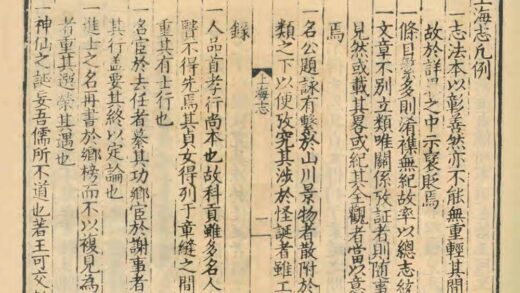 上海志凡例
一志法本以彰善然亦不能無重輕其間
故於詳畧之中示襃貶焉
一條目繁多則淆襍無紀故率以總志統
一文章不別立類唯關係攷証者則随事
見然或載其畧或紀其全觀者當以意
焉
一名公題詠有繫於山川景物者散附於
類之下以便攷究其涉於怪誕者雖工
錄
上海志
一
一人品首孝行尚本也故科貢雖多名人
瞖不得先焉其貞女得列丁童縫之間
重其有士行也
一名臣於去任者摹其功鄉臣於謝事者
其行盖要其終以定論也
一進士之名再書於鄉榜而不以複見為
者重其選榮其遇也
一神仙之誕妄吾儒所不道也著王可交